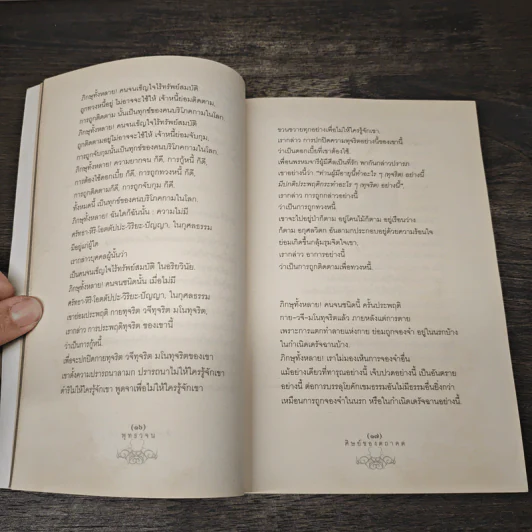 ภิกษุทั้งหลาย! คนจนเข็ญใจไร้ทรัพย์สมบัติ
ถูกทวงหนี้อยู่ ไม่อาจจะใช้ให้ เจ้าหนี้ย่อมติดตาม,
การถูกติดตาม นั้นเป็นทุกข์ของคนบริโภคกามในโลก.
ภิกษุทั้งหลาย! คนจนเข็ญใจไร้ทรัพย์สมบัติ
ถูกติดตามอยู่ไม่อาจจะใช้ให้ เจ้าหนี้ย่อมจับกุม,
การถูกจับกุมนั้นเป็นทุกข์ของคนบริโภคกามในโลก.
ภิกษุทั้งหลาย! ความยากจน ก็ดี, การกู้หนี้ ก็ดี,
การต้องใช้ดอกเบี้ย ก็ดี, การถูกทวงหนี้ ก็ดี,
การถูกติดตามก็ดี, การถูกจับกุม ก็ดี,
ทั้งหมดนี้ เป็นทุกข์ของคนบริโภคกามในโลก.
ภิกษุทั้งหลาย! ฉันใดก็ฉันนั้น : ความไม่มี
ศรัทธา-หิริ-โอตตัปปะ-วิริยะ-ปัญญา. ในกุศลธรรม
มีอยู่แก่ผู้ใด
เรากล่าวบุคคลผู้นั้นว่า
เป็นคนจนเข็ญใจไร้ทรัพย์สมบัติ ในอริยวินัย.
ภิกษุทั้งหลาย! คนจนชนิดนั้น เมื่อไม่มี
ศรัทธา-หิริ-โอตตัปปะ-วิริยะ-ปัญญา. ในกุศลธรรม
เขาย่อมประพฤติ กายทุจริต วจีทุจริต มโนทุจริต.
เรากล่าว การประพฤติทุจริต ของเขานี้
ว่าเป็นการกู้หนี้.
เพื่อจะปกปิดกายทุจริต วจีทุจริต มโนทุจริตของเขา
เขาตั้งความปรารถนาลามก ปรารถนาไม่ให้ใครรู้จักเขา
ดำริไม่ให้ใครรู้จักเขา พูดจาเพื่อไม่ให้ใครรู้จักเขา
(๑๖)
พุทธวจน
ขวนขวายทุกอย่างเพื่อไม่ให้ใครรู้จักเขา.
เรากล่าว การปกปิดความทุจริตอย่างนี้ของเขานี้
ว่าเป็นดอกเบี้ยที่เขาต้องใช้.
เพื่อนพรหมจารีผู้มีศีลเป็นที่รัก พากันกล่าวปรารภ
เขาอยู่อย่างนี้ว่า “ท่านผู้มีอายุนี้ทำอะไร ๆ (ทุจริต) อย่างนี้
มีปกติประพฤติกระทำอะไร ๆ (ทุจริต) อย่างนี้”.
เรากล่าว การถูกกล่าวอย่างนี้
ว่าเป็นการถูกทวงหนี้.
เขาจะไปอยู่ป่าก็ตาม อยู่โคนไม้ก็ตาม อยู่เรือนว่าง
ก็ตาม อกุศลวิตก อันลามกประกอบอยู่ด้วยความร้อนใจ
ย่อมเกิดขึ้นกลุ้มรุมจิตใจเขา.
เรากล่าว อาการอย่างนี้
ว่าเป็นการถูกติดตามเพื่อทวงหนี้.
ภิกษุทั้งหลาย! คนจนชนิดนี้ ครั้นประพฤติ
กาย-วจี-มโนทุจริตแล้ว ภายหลังแต่การตาย
เพราะการแตกทำลายแห่งกาย ย่อมถูกจองจำ อยู่ในนรกบ้าง
ในกำเนิดเดรัจฉานบ้าง.
ภิกษุทั้งหลาย! เราไม่มองเห็นการจองจำอื่น
แม้อย่างเดียวที่ทารุณอย่างนี้ เจ็บปวดอย่างนี้ เป็นอันตราย
อย่างนี้ ต่อการบรรลุโยคักเขมธรรมอันไม่มีธรรมอื่นยิ่งกว่า
เหมือนการถูกจองจำในนรก หรือในกำเนิดเดรัจฉานอย่างนี้
(๑๗)
ศิษย์ของตถาคต